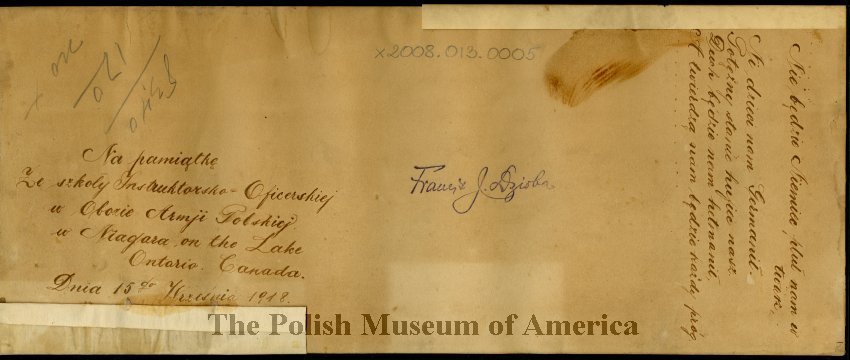 x2008.013.0005
Na pamiątkę
Ze szkoły Instruktorsko-Oficerskiej
w Obozie Armji Polskiej
w Niagara on the Lake
Ontario. Canada.
Dnia 15go Września 1918.
Francis J. Dzioba
Nie będzie Niemiec pluł nam w
twarz,
Ni dzieci nam Germanił.
Potężny stanie hufiec nasz
Duch będzie nam hetmanił
twierdzą nam będzie każdy próg
The Polish Museum of America